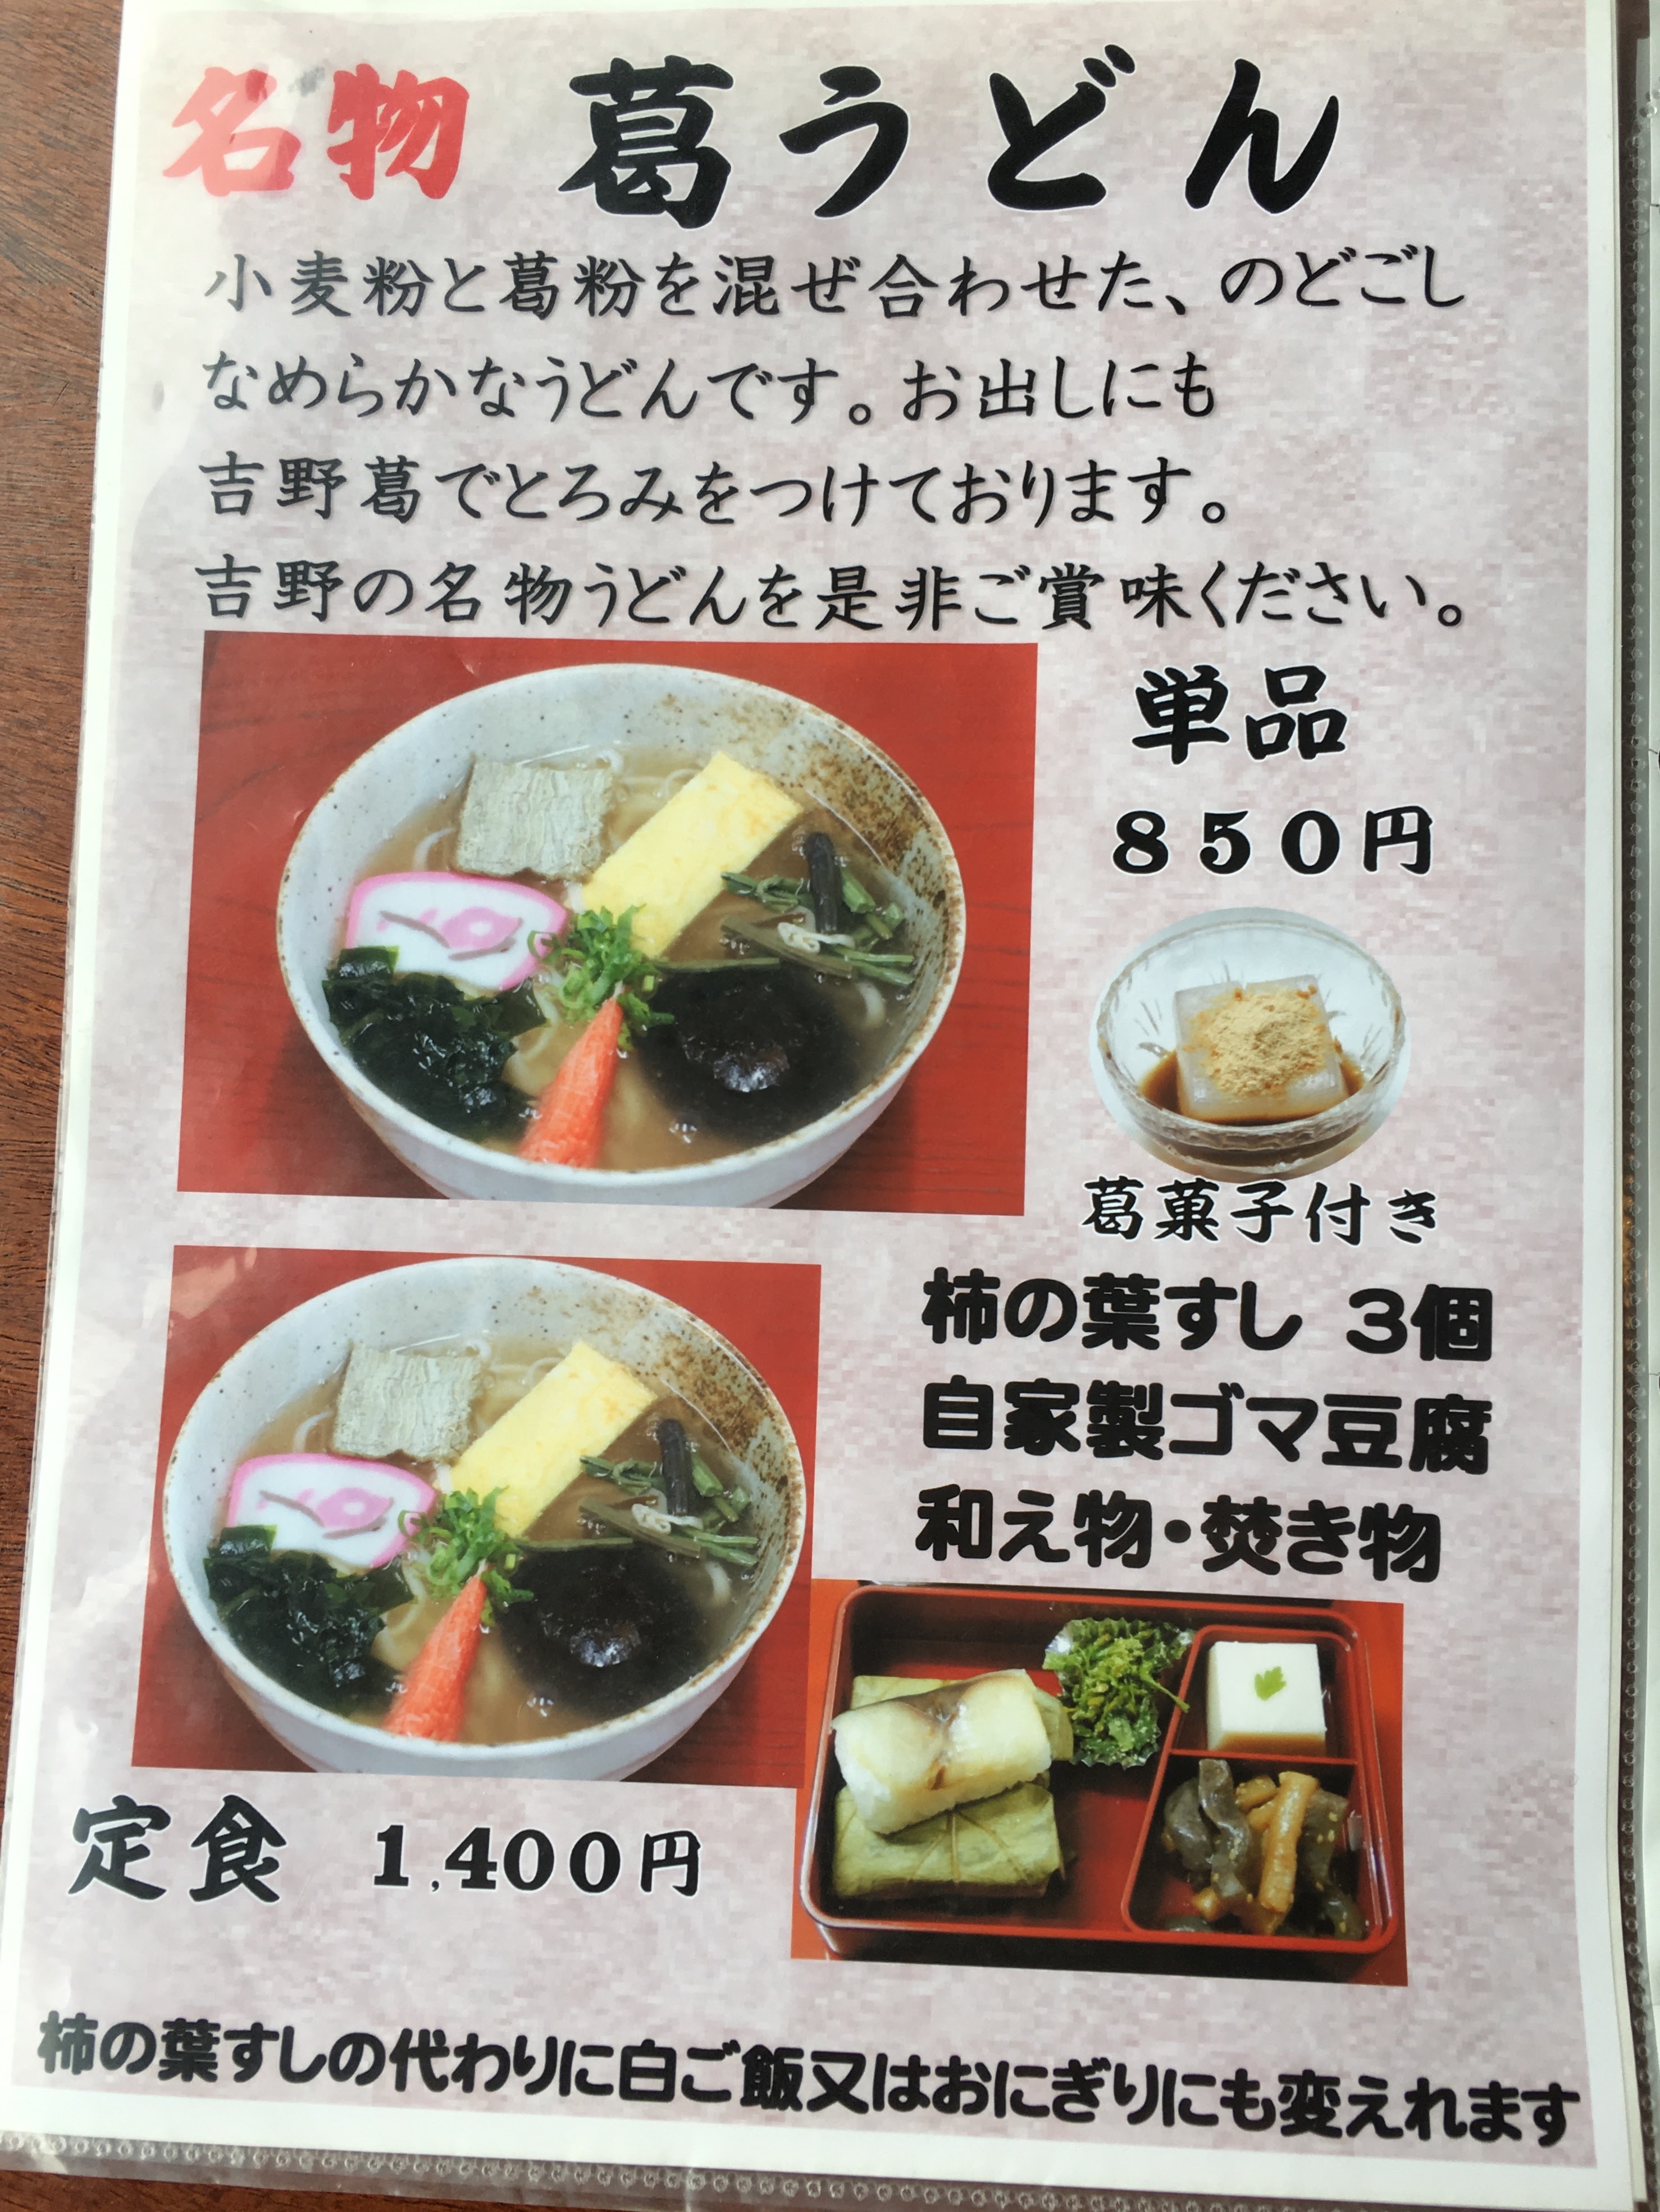 名物 葛うどん
小麦粉と葛粉を混ぜ合わせた、のどごし
なめらかなうどんです。お出しにも
吉野葛でとろみをつけております。
吉野の名物うどんを是非ご賞味ください。
単品
８５０円
葛菓子付き
柿の葉すし ３個
自家製ゴマ豆腐
和え物・焚き物
定食 １,４００円
柿の葉すしの代わりに白ご飯又はおにぎりにも変えれます